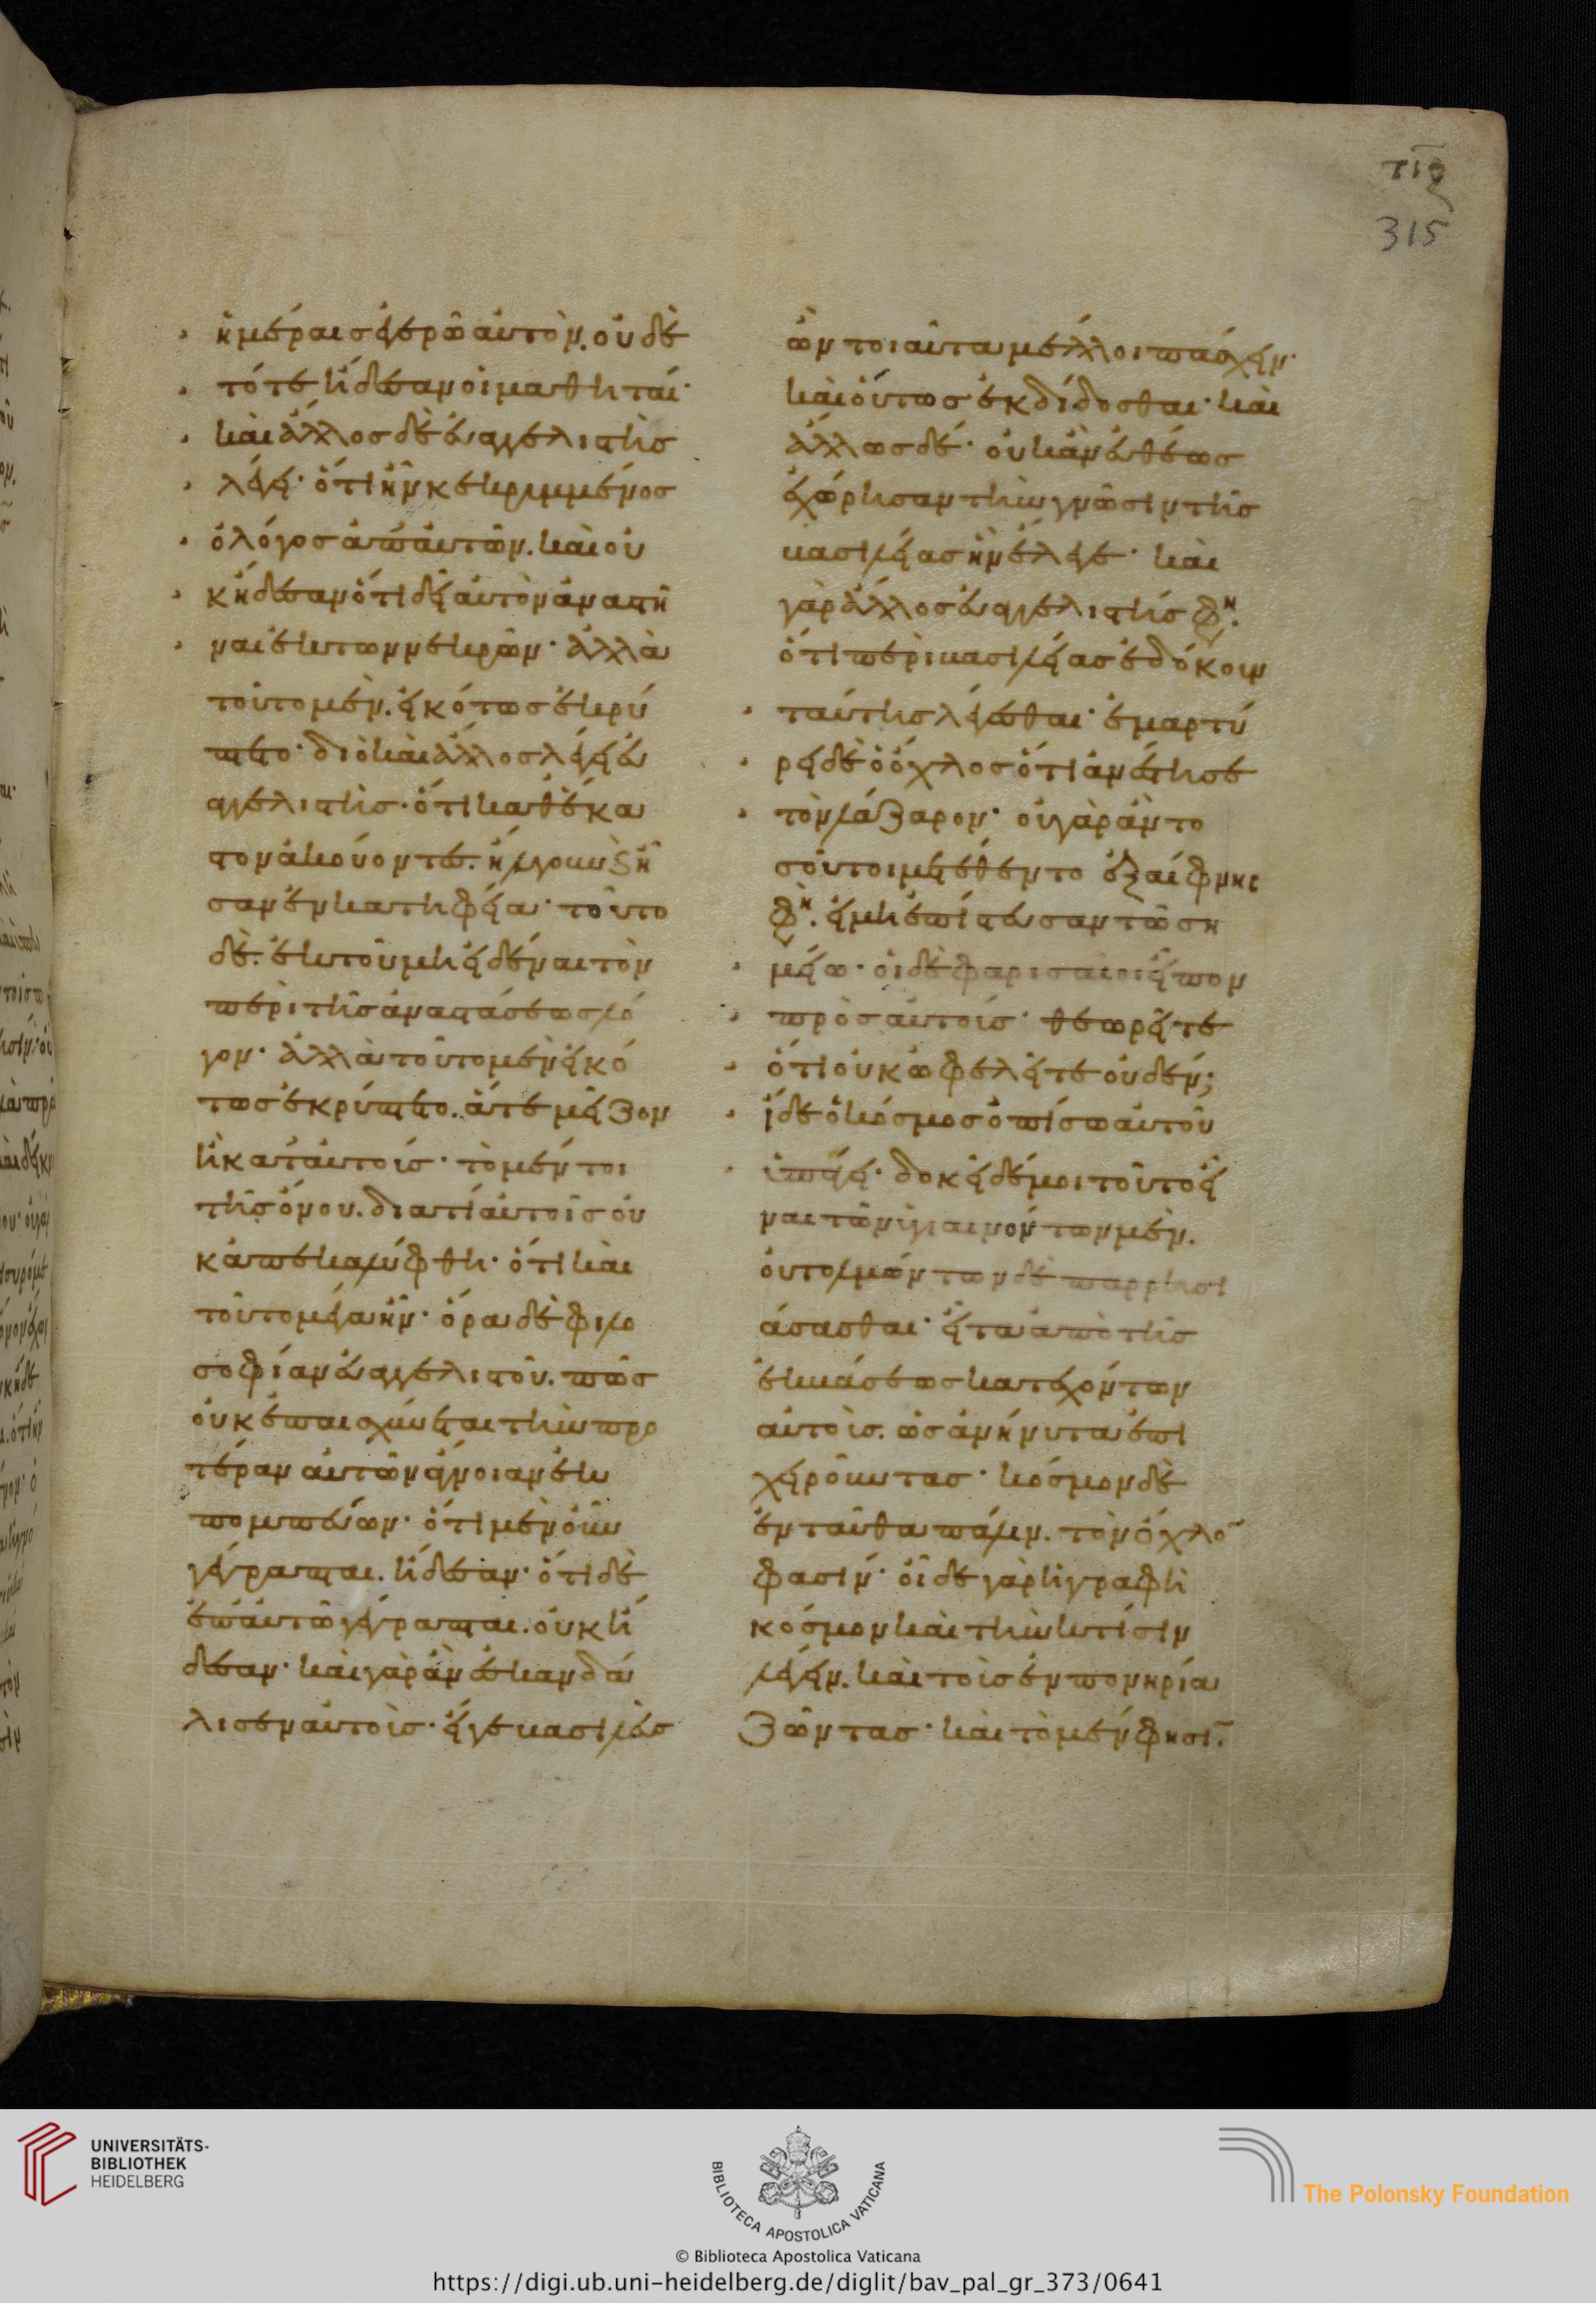 τιε
315
ἡμέραις ἐγερῶ αὐτὸν. οὐδὲ
τότε ἤδεσαν οἱ μαθηταί·
καὶ ἄλλος δὲ εὐαγγελιστὴς
λέγει· ὅτι ἦν κεκρυμμένος
ὁ λόγος ἀπ' αὐτῶν. καὶ οὐ
κ ἤδεσαν ὅτι δεῖ αὐτὸν ἀναστῆ
ναι ἐκ τῶν νεκρῶν· ἀλλὰ
τοῦτο μὲν. εἰκότως ἐκρύ
πτετο· διὸ καὶ ἄλλος λέγει εὐ
αγγελιστὴς· ὅτι καθ' ἕκα
στον ἀκούοντες. ἤλγουν καὶ ἦ
σαν ἐν κατηφείᾳ· τοῦτο
δὲ. ἐκ τοῦ μὴ εἰδέναι τὸν
περὶ τῆς ἀναστάσεως λό
γον· ἀλλὰ τοῦτο μὲν εἰκό
τως ἐκρύπτετο. ἅτε μεῖζον
ἢ κατ' αὐτούς· τὸ μέντοι
τῆς ὄνου. διατί αὐτοῖς οὐ
κ ἀπεκαλύφθη· ὅτι καὶ
τοῦτο μέγα ἦν· ὅρα δὲ φιλο
σοφίαν εὐαγγελιστοῦ. πῶς
οὐκ ἐπαισχύνεται τὴν προ
τέραν αὐτῶν ἄγνοιαν ἐκ
πομπεύων· ὅτι μὲν οὖν
γέγραπται. ἤδεσαν· ὅτι δὲ
ἐπ' αὐτῶ γέγραπται. οὐκ ἤ
δεσαν· καὶ γὰρ ἂν ἐσκανδά
λισεν αὐτοὺς· εἴγε βασιλεὺς
ὢν τοιαῦτα μέλλοι πάσχειν·
καὶ οὕτως ἐκδίδοσθαι· καὶ
ἄλλως δέ· οὐκ ἂν εὐθέως
ἐχώρησαν τὴν γνῶσιν τῆς
βασιλείας ἣν ἔλεγε· καὶ
γὰρ ἄλλος εὐαγγελιστής φη.
ὅτι περὶ βασιλείας ἐδόκουν
ταύτης λέγεσθαι· ἐμαρτύ
ρει δὲ ὁ ὄχλος ὅτι ἀνέστησε
τὸν λάζαρον· οὐ γὰρ ἂν το
σοῦτοι μετέθεντο ἐξαίφνης
φη. εἰ μὴ ἐπίστευσαν τῶ ση
μείω· οἱ δὲ φαρισαῖοι εἶπον
πρὸς αὐτούς· θεωρεῖτε
ὅτι οὐκ ὠφελεῖτε οὐδέν;
ἴδε ὁ κόσμος ὀπίσω αὐτοῦ
ὑπάγει· δοκεῖ δέ μοι τοῦτο εἶ
ναι τῶν ὑγιαινόντων μὲν.
οὐ τολμώντων δὲ παρρησι
άσασθαι· εἶτα ἀπὸ τῆς
ἐκβάσεως κατεχόντων
αὐτοὺς. ὡς ἀνήνυτα ἐπι
χειροῦντας· κόσμον δὲ
ἐνταῦθα πάλιν. τὸν ὄχλο̄
φασίν· οἶδε γὰρ ἡ γραφὴ
κόσμον καὶ τὴν κτίσιν
λέγειν. καὶ τοὺς ἐν πονηρία
ζῶντας· καὶ τὸ μὲν φησῑ.
UNIVERSITÄTS-
BIBLIOTHEK
HEIDELBERG
BIBLIOTECA APOSTOLICA VATICANA
The Polonsky Foundation
© Biblioteca Apostolica Vaticana
https://digi.ub.uni-heidelberg.de/diglit/bav_pal_gr_373/0641